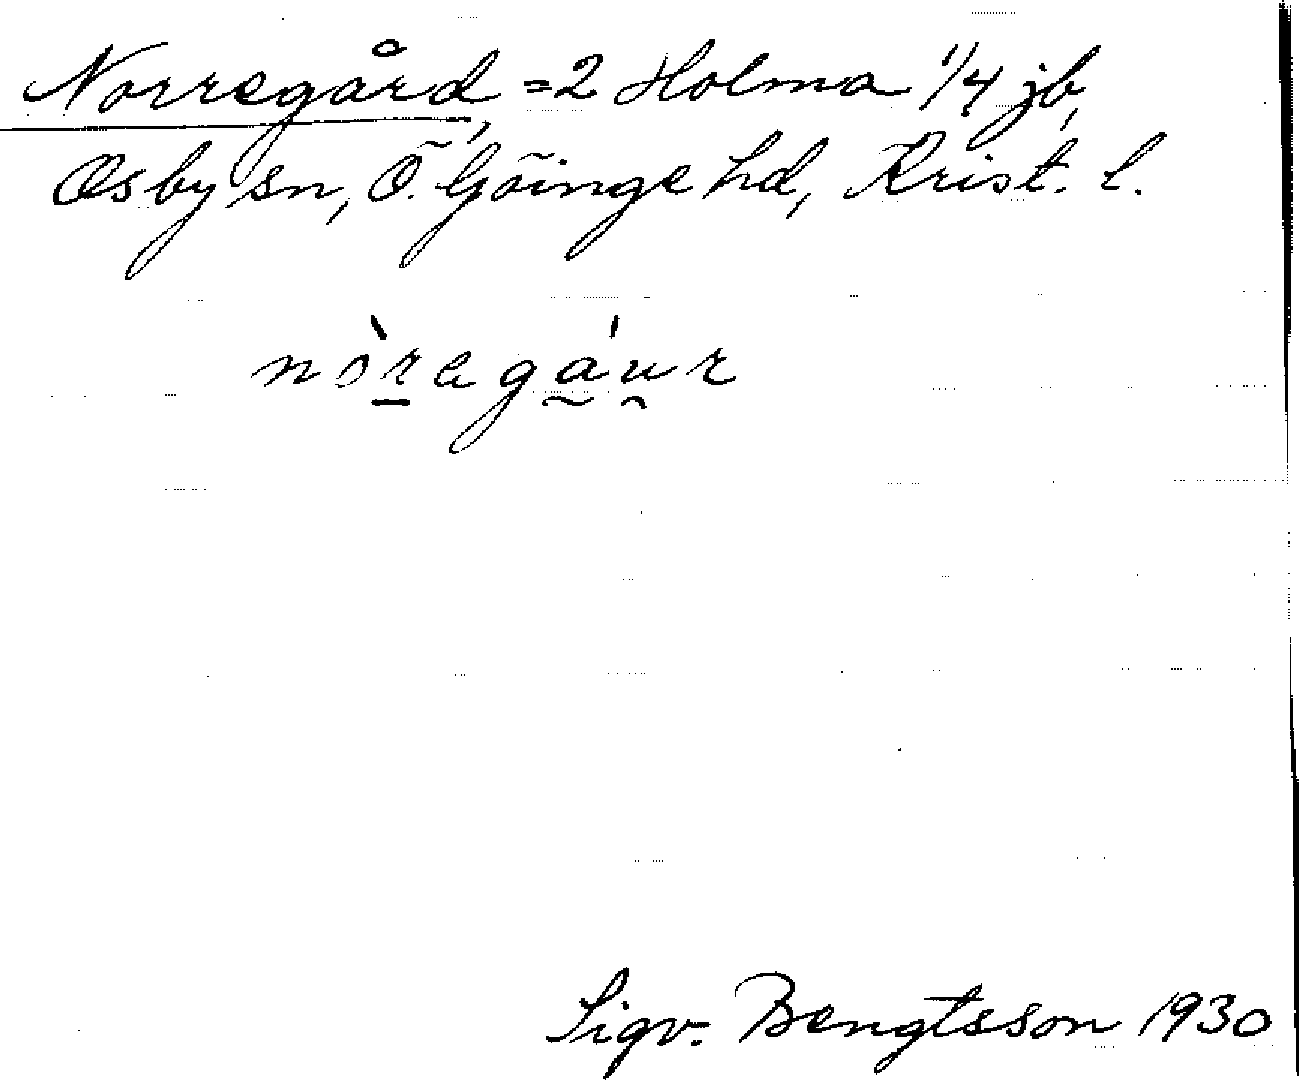 Norregård, =2 Holma 1/4 jb,
Osby sn, Ö. Göinge hd, Krist. l.
nòregáur
Sigv. Bengtsson 1930